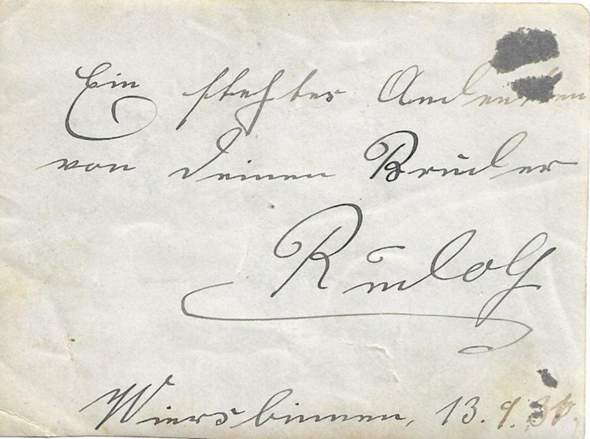 Ein stehtes Andenken
von deinen Bruder
Rudolf
Wiersbinnen, 13. 9.